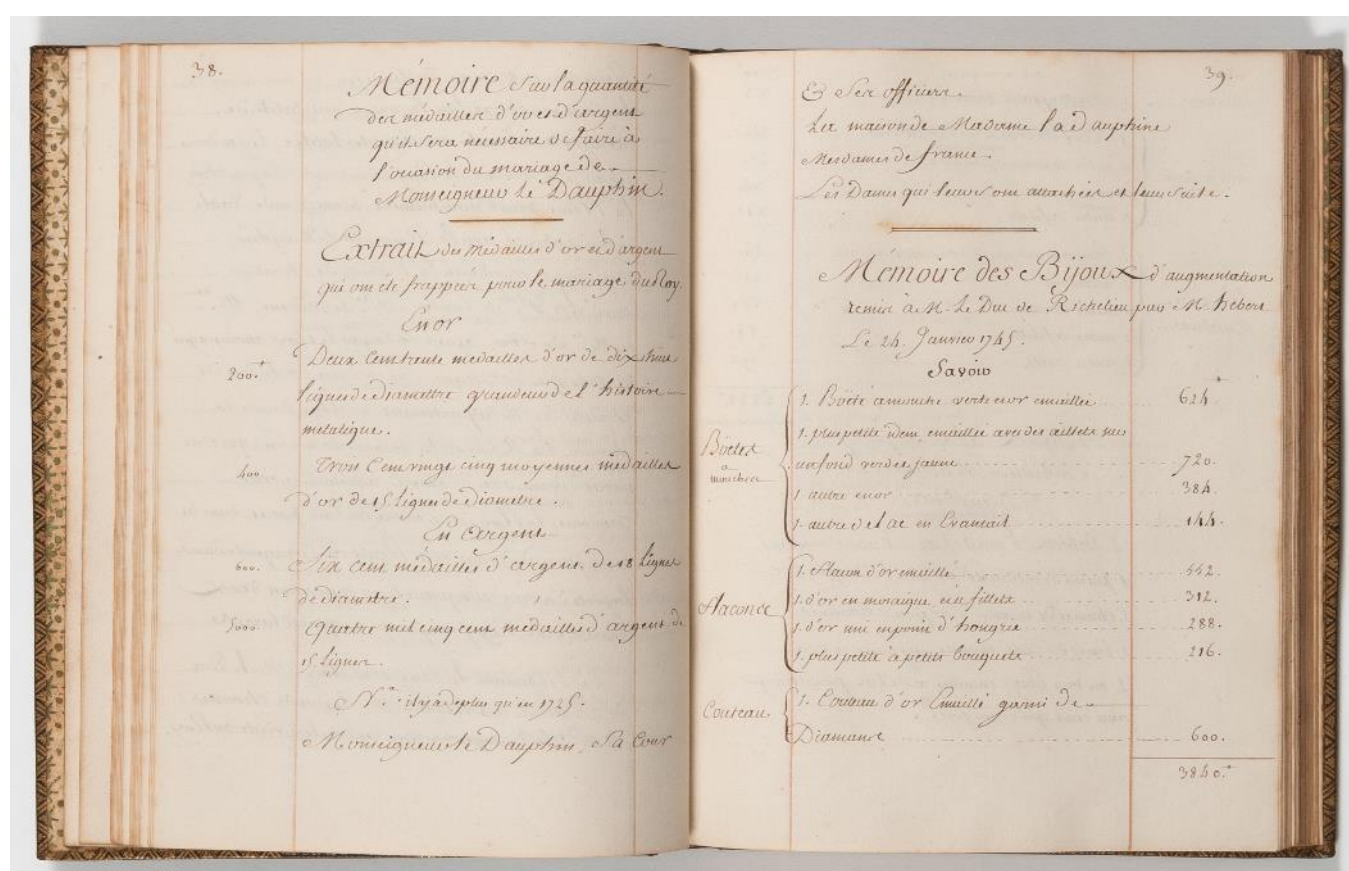 38.
Mémoire Sur la quantité
des médailles d'or et d'argent
qu'il Sera nécessaire de faire à
l'occasion du mariage de
Monseigneur le Dauphin.
Extrait des médailles d'or et d'argent
qui ont été frappées pour le mariage du Roy.
En or
200. Deux Cent trente medailles d'or de dix huit
lignes de diamettre grandeur de l'histoire
metalique.
400. Trois Cent vingt cinq moyennes medailles
d'or de 15 lignes de diametre.
En Argent
600. Six Cent médailles d'argent de 18 lignes
de diametre.
5000. Quatre mil cinq cent medailles d'argent de
15 lignes.
Nta. il y a de plus qu'en 1725.
Monseigneur le Dauphin, Sa Cour
39.
& Ses officiers.
La maison de Madame la Dauphine
Mesdames de france.
Les Dames qui leurs sont attachées et leur Suite.
Mémoire des Bijoux d'augmentation
remis à M. Le Duc de Richelieu par M. hebert
Le 24. Janvier 1745.
Savoir
Boetes a mouches
1. Boëte a mouche verte en or emaillée 624.
1. plus petite idem emaillée avec des œillets sur
un fond verd et jaune 720.
1 autre en or 384.
1. autre de lac en Evantail 144.
Flacons
1. Flacon d'or emaillé 552.
1. d'or en mosaique et a fillets 312.
1. d'or uni en point d'hongrie 288.
1. plus petit à petits bouquets 216.
Couteau
1. Couteau d'or Emaillé garni de
Diamants 600.
3840.